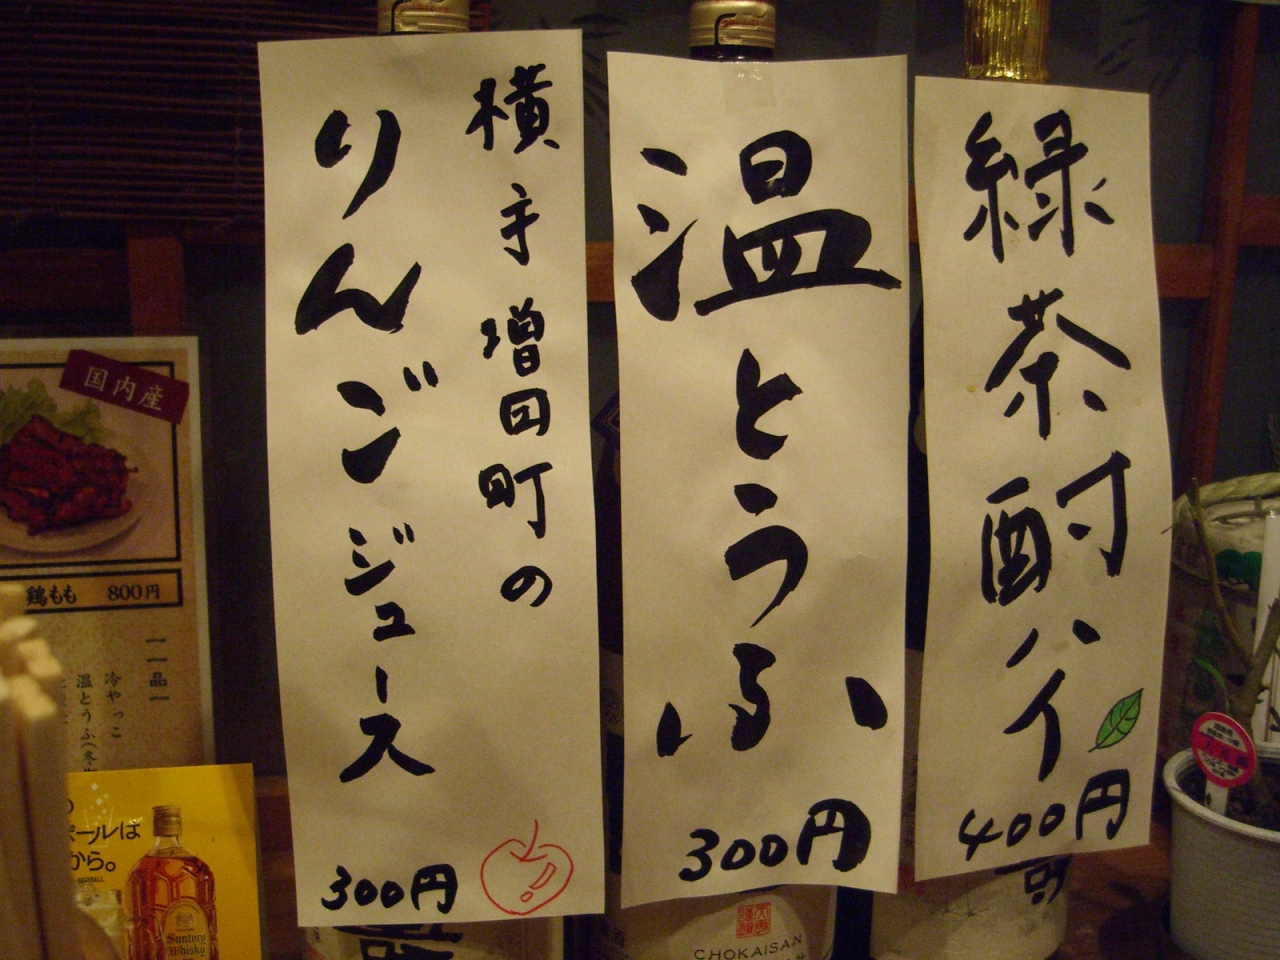 緑茶酎ハイ
400円
温とうふ
300円
横手増田町の
りんごジュース
300円
国内産
鶏もも 800円
一品
冷やっこ
温とうふ(冬
ボールは
から。
Suntory
Whisky
CHOKAISAN